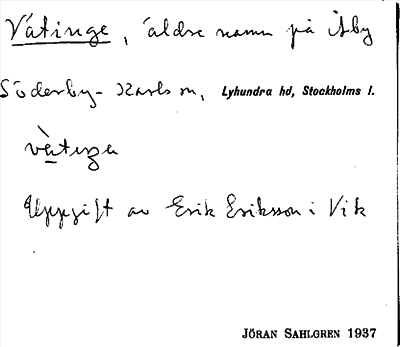 Vätinge, äldre namn på Åby
Söderby-Karls sn, Lyhundra hd, Stockholms l.
vä̀tiŋa
Uppgift av Erik Eriksson i Vik
JÖRAN SAHLGREN 1937